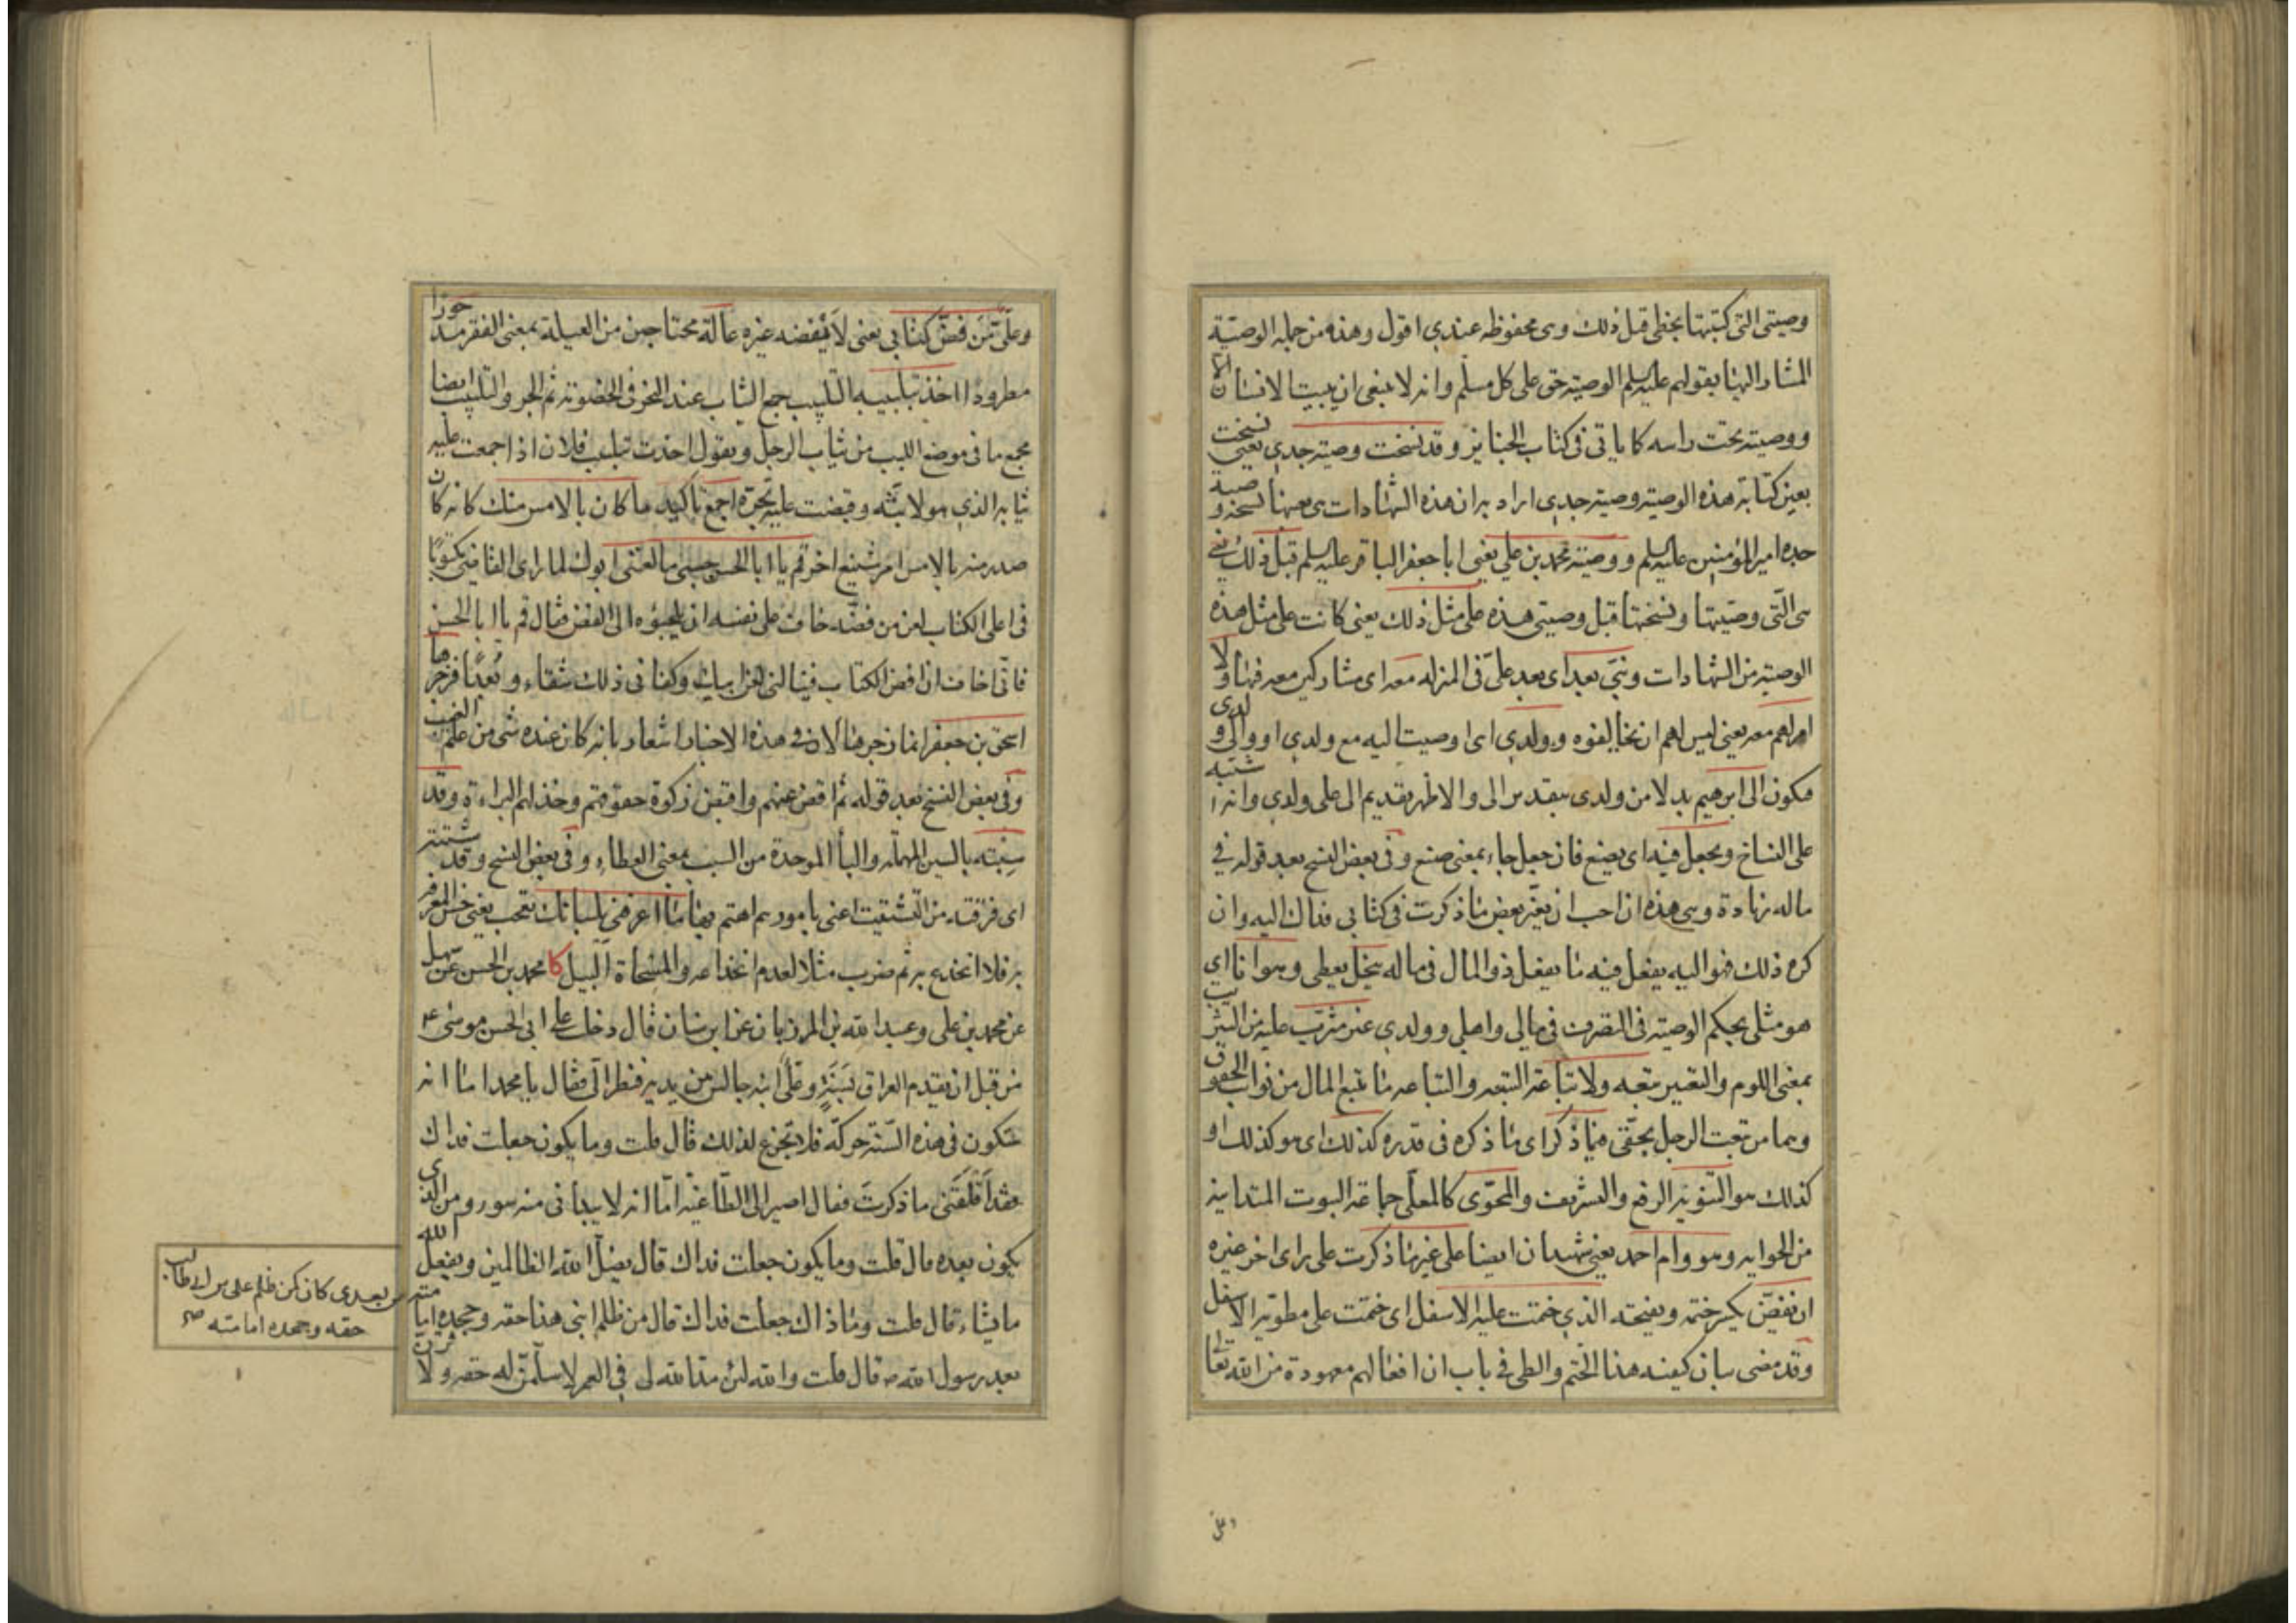 وصيتي التي كتبتها بخطي قبل ذلك وهي محفوظه عندي اقول وهذه من جمله الوصيّة
المشار اليها بقولهم عليهم السلم الوصية حق على كل مسلم وانه لا ينبغي ان يبيت الانسان الا
ووصيته تحت راسه كما ياتي في كتاب الجنايز وقد نسخت وصية جدي يعني نسخت
بعين كتابة هذه الوصية وصية جدي اراد به ان هذه الشهادات هي بعينها نسخة وصية
جده امير المؤمنين عليه السلم ووصية محمد بن علي يعني ابا جعفر الباقر عليه السلم قبل ذلك يعني
هي التي وصيتها ونسختها قبل وصيتي هذه على مثل ذلك يعني كانت على مثل هذه
الوصية من الشهادات وبنيّ بعد اي بعد عليّ في المنزله معه اي مشاركين معه فيها ولا
امر لهم معه يعني ليس لهم ان يخالفوه وولدي اي اوصيت اليه مع ولدي او والى ولدي
فيكون الى ابرهيم بدلا من ولدي بتقدير الى والاظهر تقديم الى على ولدي وانه اشتبه
على النساخ ويجعل فيه اي يصنع فان جعل جاء بمعنى صنع وفي بعض النسخ بعد قوله في
ماله زيادة وهي هذه ان احب ان يغير بعض ما ذكرت في كتابي فذاك اليه وان
كره ذلك فهو اليه يفعل فيه ما يفعل ذو المال في ماله ينحل يعطي وهو انا اي
هو مثلي بحكم الوصية في التصرف في مالي واهلي وولدي غير مثرّب عليه من التثريب
بمعنى اللوم والتعيير بتبعه ولا تباعة التبعه والتباعه ما تتبع المال من نوايب الحقوق
وهما من تبعت الرجل بحقّي فيما ذكر اي ما ذكره في قدره كذلك اي هو كذلك او
كذلك هو التنويه الرفع والتشريف والمحوّى كالمعلّى جماعة البيوت المتدانية
من الحوايه وهو وام احمد يعني شهيدان ايضا على غير ما ذكرت على راي اخر غيره
ان يفضّ يكسر ختمه ويفتحه الذي ختمت عليه الاسفل اي ختمت على مطويه الاسفل
وقد مضى بيان كيفيه هذا الختم والطي في باب ان افعالهم معهودة من الله تعالى
وعلى
وعلى من فضّ كتابي يعني لا يفضه غيره عالة محتاجين من العيلة بمعنى الفقر مدحورا
مطرودا اخذ بتلبيبه التلبيب جمع الثياب عند النحر في الخصومة ثم الجر والتلبيب ايضا
مجمع ما في موضع اللبب من ثياب الرجل ويقول اخذت بتلبيب فلان اذا جمعت عليه
ثيابه الذي هو لابسه وقبضت عليه تجره اجمع تاكيد ما كان بالامس منك كانه كان
صدر منه بالامس امر شنيع اخر قم يا ابا الحسن حسبي ما لعنني ابوك لما راى القاضي مكتوبا
في اعلى الكتاب لعن من فضّه خاف على نفسه ان يلجئوه الى الفض فقال قم يا ابا الحسن
فاني اخاف ان افض الكتاب فينالني لعن ابيك وكفاني ذلك شقاء وبُعدًا فزجرها
اسحق بن جعفر انما زجرها لان في هذه الاخبار اشعار بانه كان عنده شيء من علم الغيب
وفي بعض النسخ بعد قوله ثم اقض عنهم واقبض زكوة حقوقهم وخذ لهم البراءة وقد
سيّبته بالسين المهملة واليا الموحدة من السيب بمعنى العطاء وفي بعض النسخ وقد شتّته
اي فرّقته من التشتيت اعني بامورهم اهتم بها ما اعرفني بلسانك تعجب يعني حسن المعرفه
به فلا انخدع به ثم ضرب مثلا لعدم انخداعه والمسحاة البيل كا محمد بن الحسن عن سهل
عن محمد بن علي وعبد الله بن المرزبان عن ابن سنان قال دخلت على ابي الحسن موسى ع
من قبل ان يقدم العراق بسَنَةٍ وعليّ ابنه جالس بين يديه فنظر اليّ فقال يا محمد اما انه
ستكون في هذه السّنة حركة فلا تجزع لذلك قال قلت وما يكون جعلت فداك
فقد اَقْلَقَني ما ذكرتَ فقال اصير الى الطّاغية امّا انه لا يبداني منه سوء ومن الذي
يكون بعده قال قلت وما يكون جعلت فداك قال يضلّ الله الظالمين ويفعل الله
ما يشاء قال قلت وما ذاك جعلت فداك قال من ظلم ابني هذا حقه وجحده امامته
من بعدي كان كمن ظلم علي بن ابي طالب
حقه وجحده امامته صح
بعد رسول الله ص قال قلت والله لئن مدّ الله لي في العمر لاسلّمنّ له حقه ولاقرن